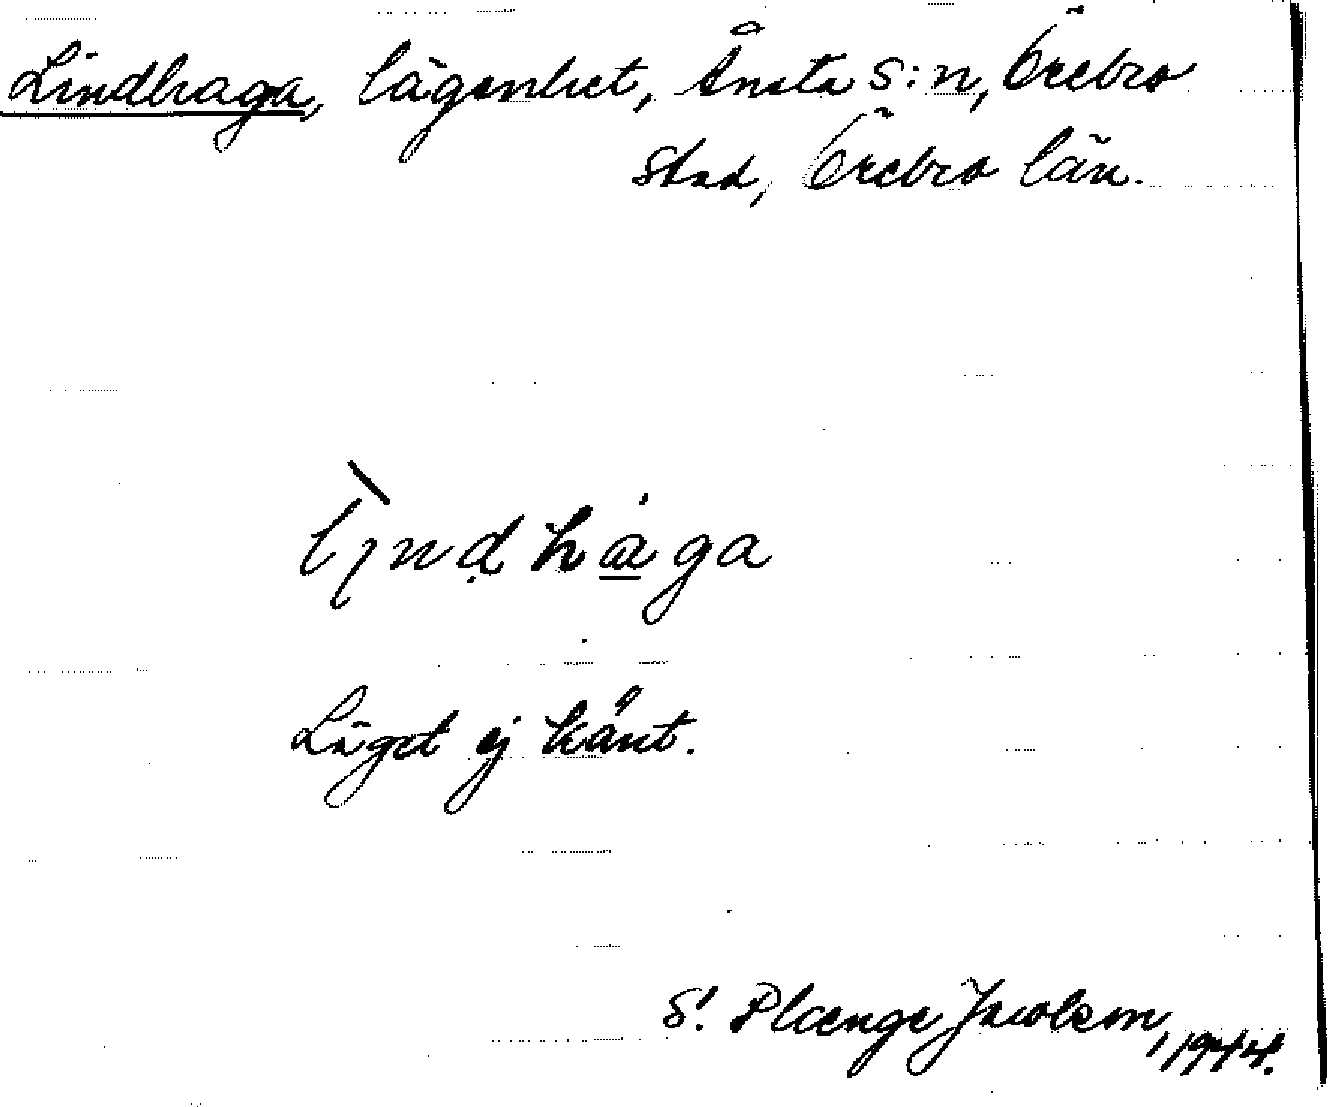 Lindhaga, lägenhet, Ånsta s:n, Örebro
stad, Örebro län.
lındhaga
Läget ej känt.
S. Plænge Jacobson, 1944.